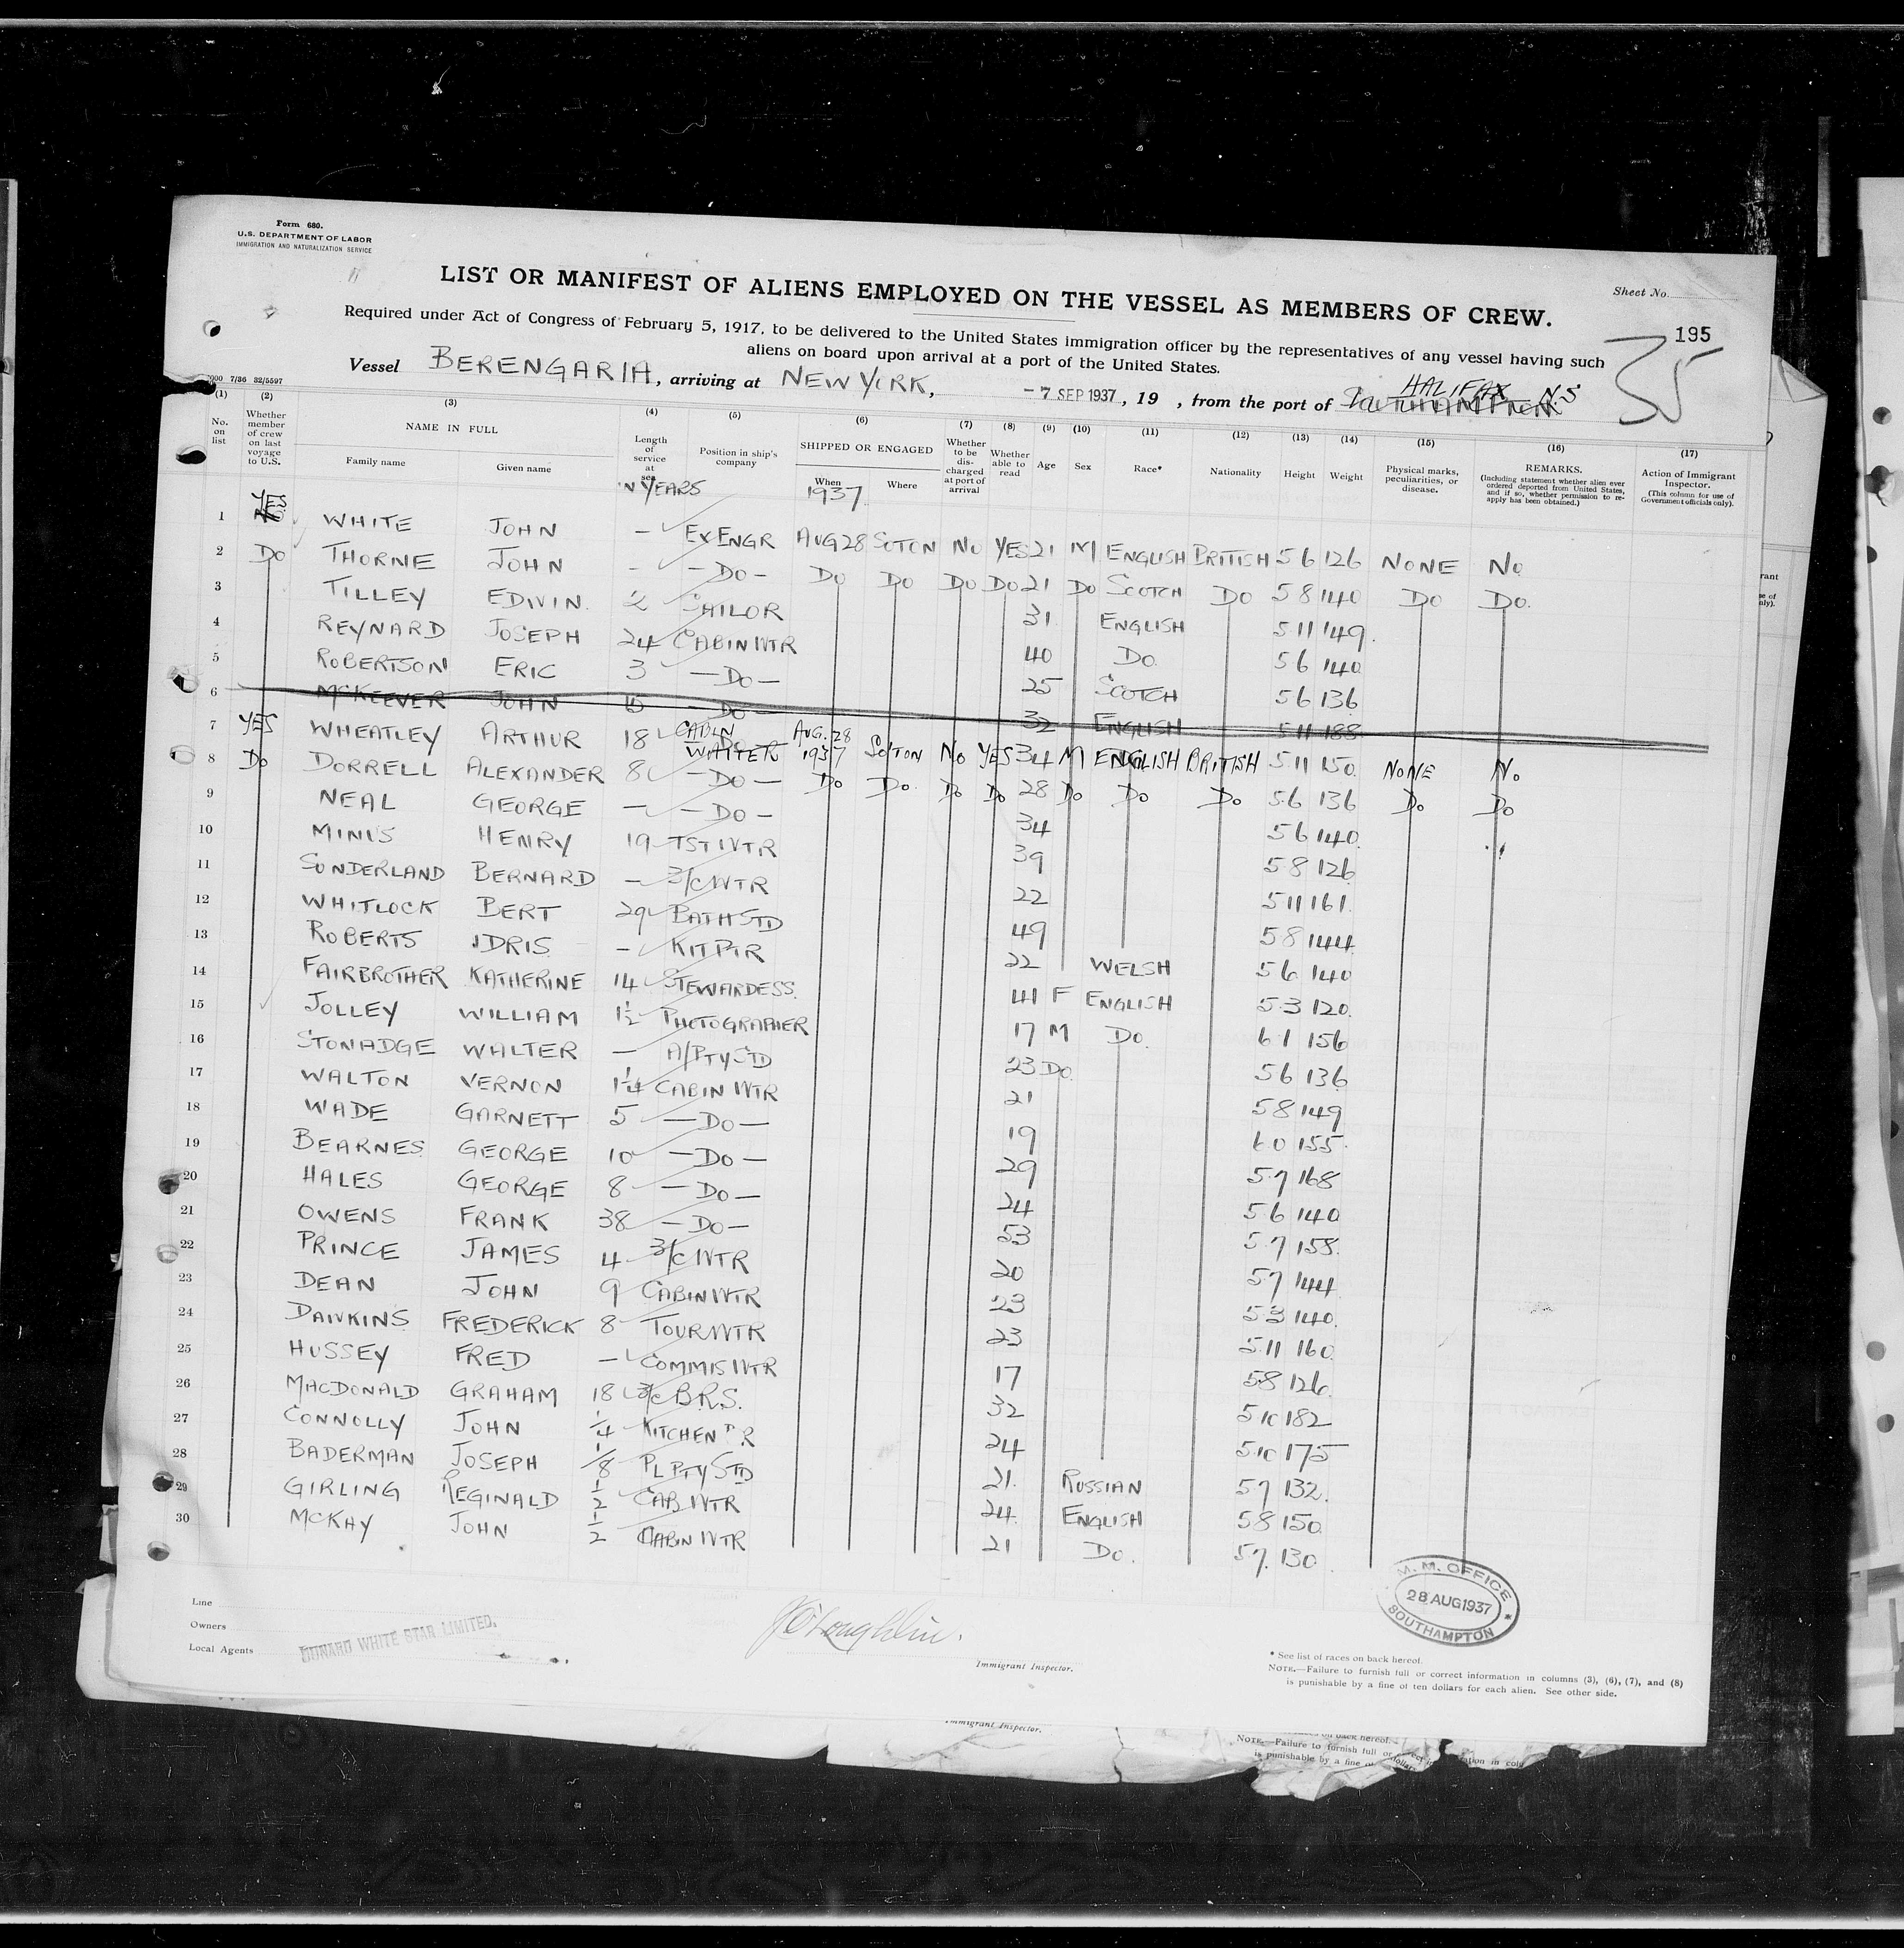 Form 680.
U.S. DEPARTMENT OF LABOR
IMMIGRATION AND NATURALIZATION SERVICE
LIST OR MANIFEST OF ALIENS EMPLOYED ON THE VESSEL AS MEMBERS OF CREW.
Sheet No.
195
35
Required under Act of Congress of February 5, 1917, to be delivered to the United States immigration officer by the representatives of any vessel having such
aliens on board upon arrival at a port of the United States.
Vessel BERENGARIA, arriving at NEW YORK, - 7 SEP 1937, 19 , from the port of SOUTHAMPTON HALIFAX N.S
7/36 32/5597
(1) (2) (3) (4) (5) (6) (7) (8) (9) (10) (11) (12) (13) (14) (15) (16) (17)
No. on list
Whether member of crew on last voyage to U.S.
NAME IN FULL
Family name
Given name
Length of service at sea
IN YEARS
Position in ship's company
SHIPPED OR ENGAGED
When
1937
Where
Whether to be discharged at port of arrival
Whether able to read
Age
Sex
Race*
Nationality
Height
Weight
Physical marks, peculiarities, or disease.
REMARKS.
(Including statement whether alien ever ordered deported from United States, and if so, whether permission to reapply has been obtained.)
Action of Immigrant Inspector.
(This column for use of Government officials only).
1 YES WHITE JOHN - EX ENGR AUG 28 SOTON NO YES 21 M ENGLISH BRITISH 5 6 126 NONE NO
2 DO THORNE JOHN - - DO - DO DO DO DO 21 DO SCOTCH DO 5 8 140 DO DO.
3 TILLEY EDWIN. SAILOR 31 ENGLISH 5 11 149.
4 REYNARD JOSEPH 24 CABIN WTR 40 DO. 5 6 140
5 ROBERTSON ERIC 3 - DO - 25 SCOTCH 5 6 136
6 MCKEEVER JOHN - DO - 32 ENGLISH 5 11 188
7 YES WHEATLEY ARTHUR 18 CABIN WAITER AUG. 28 1937 SO'TON NO YES 34 M ENGLISH BRITISH 5 11 150 NONE NO
8 DO DORRELL ALEXANDER 8 - DO - DO DO. DO DO 28 DO DO DO 5 6 136 DO DO
9 NEAL GEORGE - - DO - 34 5 6 140.
10 MINNS HENRY 19 TST WTR 39 5 8 126
11 SUNDERLAND BERNARD - 3/C WTR 22 5 11 161.
12 WHITLOCK BERT 29 BATH STD 49 5 8 144
13 ROBERTS IDRIS - KIT PTR 22 WELSH 5 6 140
14 FAIRBROTHER KATHERINE 14 STEWARDESS. 41 F ENGLISH 5 3 120.
15 JOLLEY WILLIAM 1½ PHOTOGRAPHER 17 M DO. 6 1 156
16 STONADGE WALTER - A/PTY STD 23 DO. 5 6 136
17 WALTON VERNON 1¼ CABIN WTR 21 5 8 149
18 WADE GARNETT 5 - DO - 19 6 0 155.
19 BEARNES GEORGE 10 - DO - 29 5.7 168
20 HALES GEORGE 8 - DO - 24 5 6 140
21 OWENS FRANK 38 - DO - 53 5.7 158.
22 PRINCE JAMES 4 3/C WTR 20 5 7 144
23 DEAN JOHN 9 CABIN WTR 23 5 3 140.
24 DAWKINS FREDERICK 8 TOUR WTR 23 5 11 160.
25 HUSSEY FRED - COMMIS WTR 17 5 8 126.
26 MACDONALD GRAHAM 18 3/C B.R.S. 32 5 10 182
27 CONNOLLY JOHN ¼ KITCHEN PR 24 5 10 175
28 BADERMAN JOSEPH 1/8 PL PTY STD 21. RUSSIAN 5 7 132.
29 GIRLING REGINALD ½ CAB WTR 24. ENGLISH 5 8 150.
30 MCKAY JOHN ½ CABIN WTR 21 DO. 5 7. 130
Line
Owners
Local Agents
CUNARD WHITE STAR LIMITED.
J O'Loughlin.
Immigrant Inspector.
M. M. OFFICE
28 AUG 1937
SOUTHAMPTON
* See list of races on back hereof.
NOTE.—Failure to furnish full or correct information in columns (3), (6), (7), and (8)
is punishable by a fine of ten dollars for each alien. See other side.
Immigrant Inspector.
on back hereof.
NOTE.—Failure to furnish full or
is punishable by a fine of